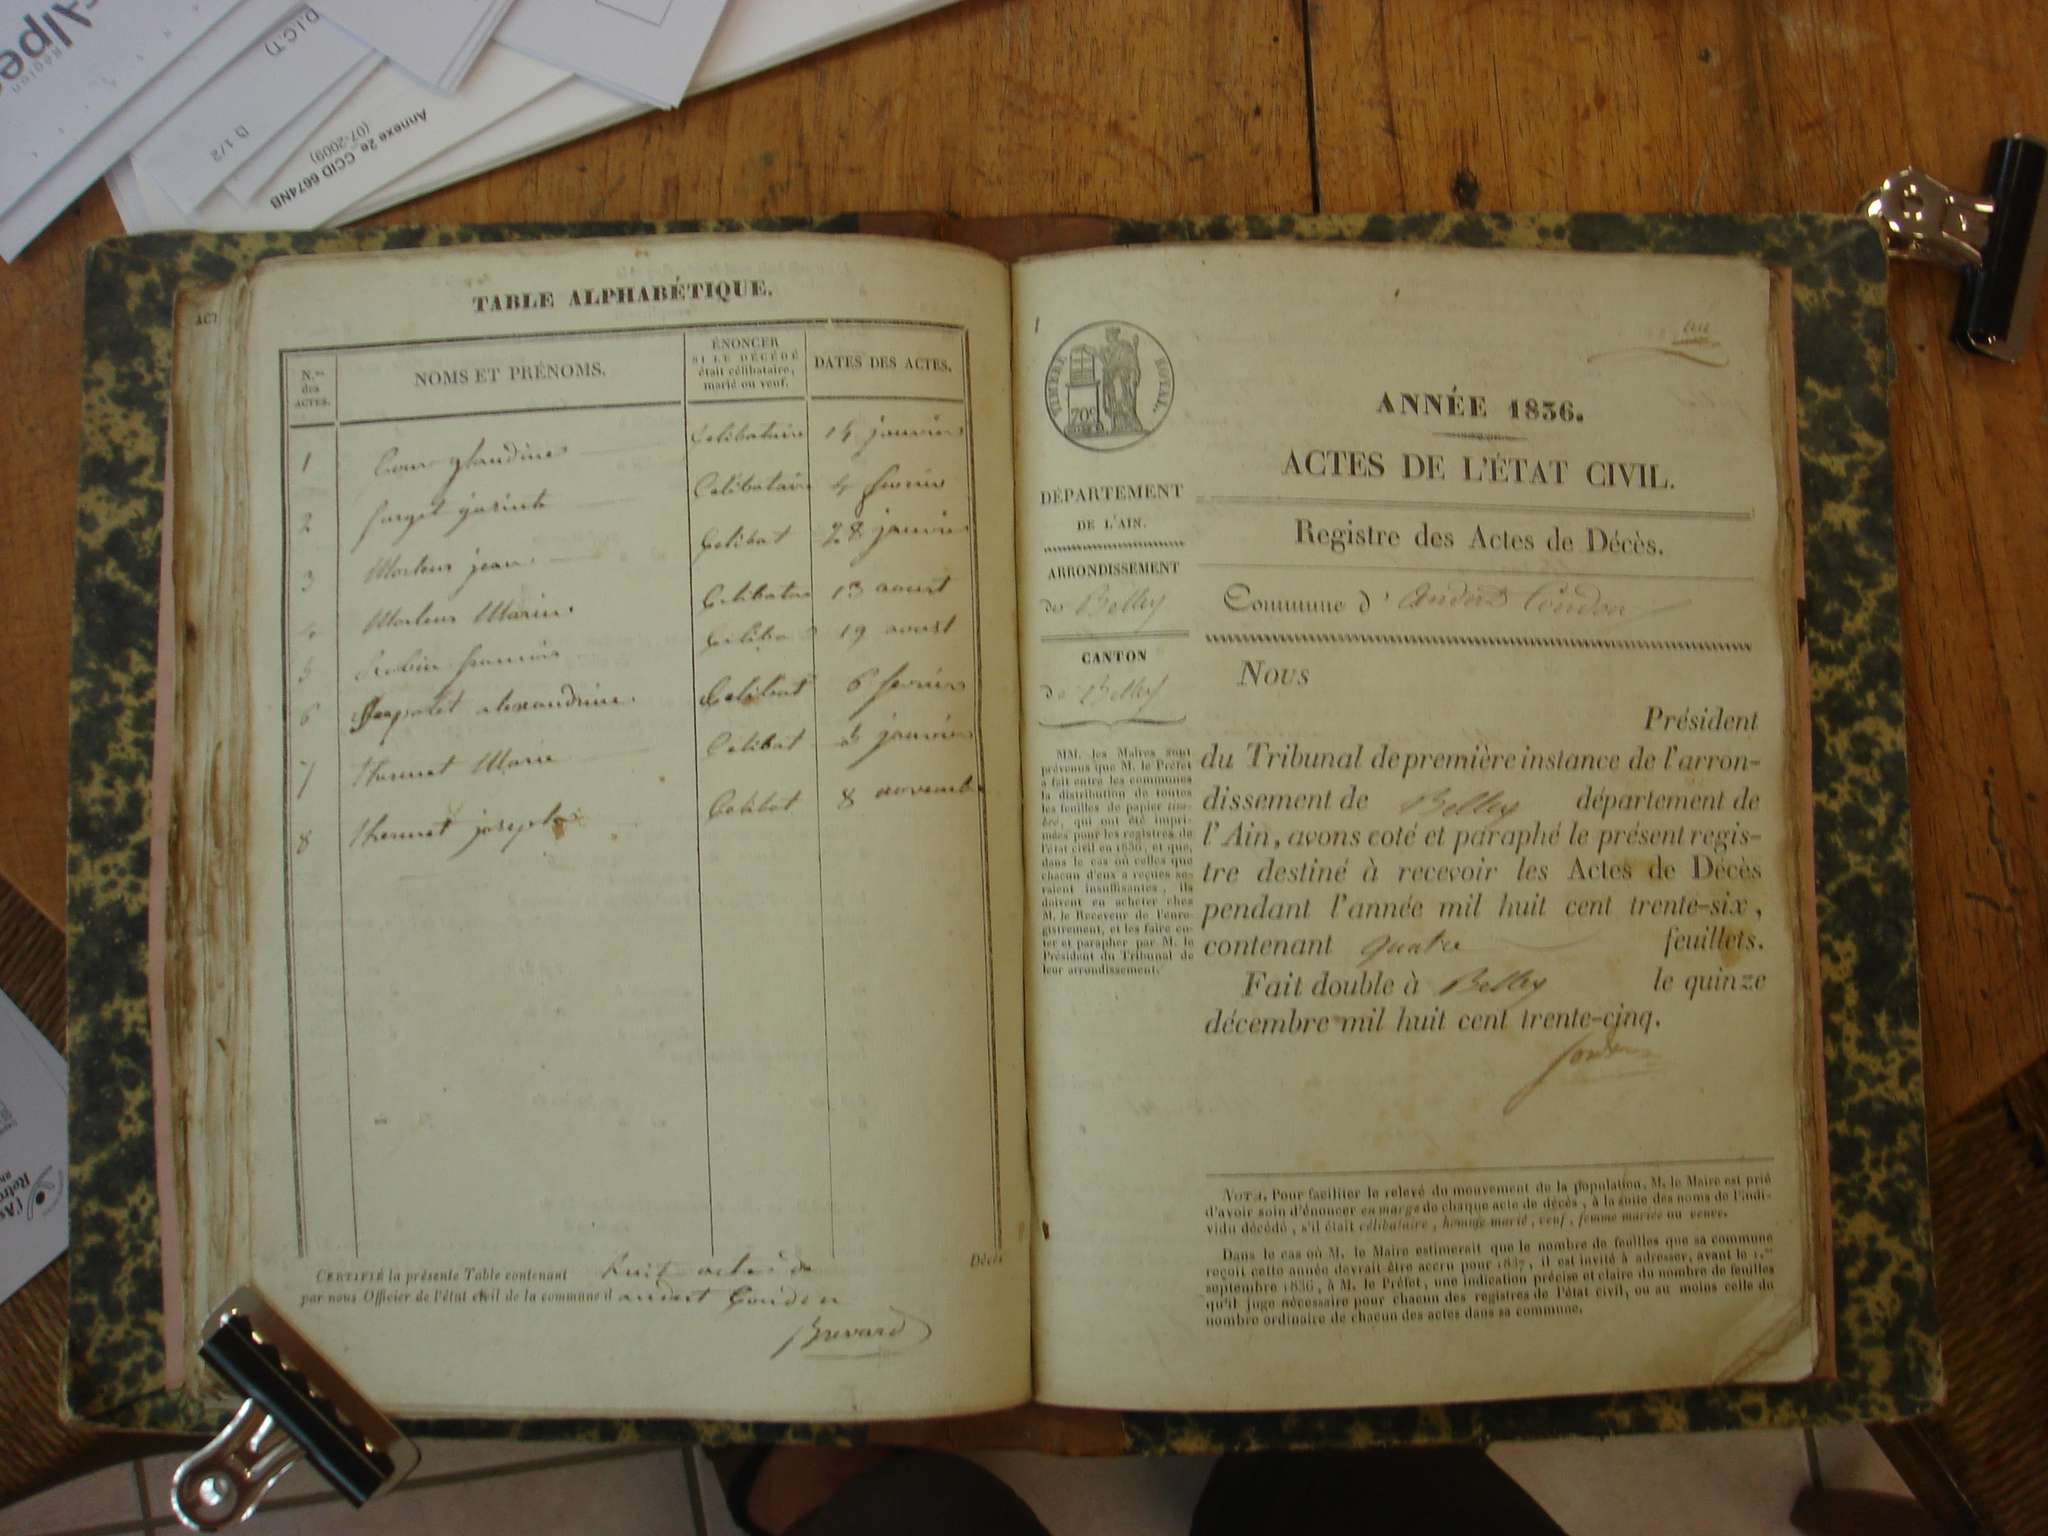 Alpes
Région
DICT)
D 1/2
Annexe 2e CCID 6674NB
(07-2009)
TABLE ALPHABÉTIQUE.
N.os des ACTES.
NOMS ET PRÉNOMS.
ÉNONCER SI LE DÉCÉDÉ était célibataire, marié ou veuf.
DATES DES ACTES.
1 glaudine Celibataire 14 janvier
2 forget Celibataire 4 fevrier
3 jean Celibat 28 janvier
4 Marie 13 aoust
5 Robin francois 19 aoust
6 alexandrine Celibat 6 fevrier
7 thermet Marie Celibat janvier
8 thermet joseph Celibat 8 novembre
Décès
CERTIFIÉ la présente Table contenant huit actes de
par nous Officier de l'état civil de la commune d andert Condon
Brevard
1
TIMBRE ROYAL.
70c
ANNÉE 1836.
ACTES DE L'ÉTAT CIVIL.
Registre des Actes de Décès.
Commune d' Andert Condon
DÉPARTEMENT
DE L'AIN.
ARRONDISSEMENT
de Belley
CANTON
de Belley
MM. les Maires sont
prévenus que M. le Préfet
a fait entre les communes
la distribution de toutes
les feuilles de papier tim-
bré, qui ont été impri-
mées pour les registres de
l'état civil en 1836, et que,
dans le cas où celles que
chacun d'eux a reçues se-
raient insuffisantes, ils
doivent en acheter chez
M. le Receveur de l'enre-
gistrement, et les faire co-
ter et parapher par M. le
Président du Tribunal de
leur arrondissement.
Nous
Président
du Tribunal de première instance de l'arron-
dissement de Belley département de
l'Ain, avons coté et paraphé le présent regis-
tre destiné à recevoir les Actes de Décès
pendant l'année mil huit cent trente-six,
contenant quatre feuillets.
Fait double à Belley le quinze
décembre mil huit cent trente-cinq.
NOTA. Pour faciliter le relevé du mouvement de la population, M. le Maire est prié
d'avoir soin d'énoncer en marge de chaque acte de décès, à la suite des noms de l'indi-
vidu décédé, s'il était célibataire, homme marié, veuf, femme mariée ou veuve.
Dans le cas où M. le Maire estimerait que le nombre de feuilles que sa commune
reçoit cette année devrait être accru pour 1837, il est invité à adresser, avant le 1.er
septembre 1836, à M. le Préfet, une indication précise et claire du nombre de feuilles
qu'il juge nécessaire pour chacun des registres de l'état civil, ou au moins celle du
nombre ordinaire de chacun des actes dans sa commune.